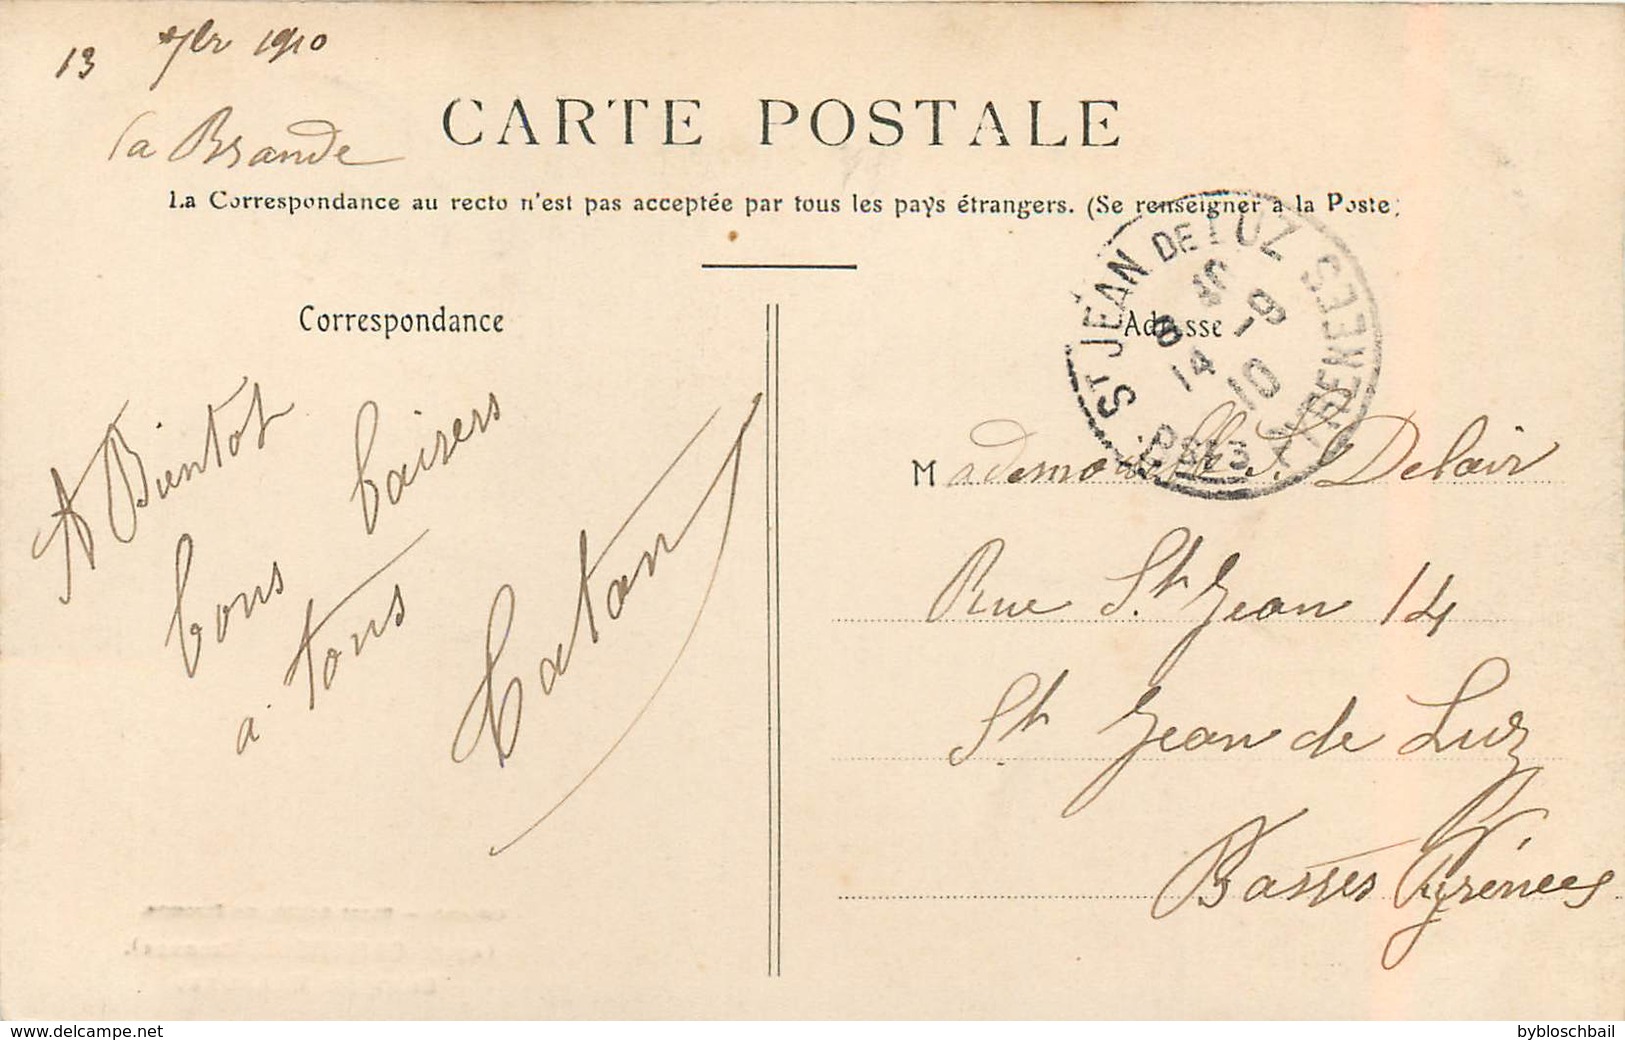 13 7br 1910
La Brande
CARTE POSTALE
La Correspondance au recto n'est pas acceptée par tous les pays étrangers. (Se renseigner à la Poste)
Correspondance
Adresse
ST JEAN DE LUZ
BSES PYRENEES
14 - 9
10
A Bientot
bons baisers
a tous
Caton
Mademoiselle S. Delair
Rue St Jean 14
St Jean de Luz
Basses Pyrénées
www.delcampe.net
bybloschbail